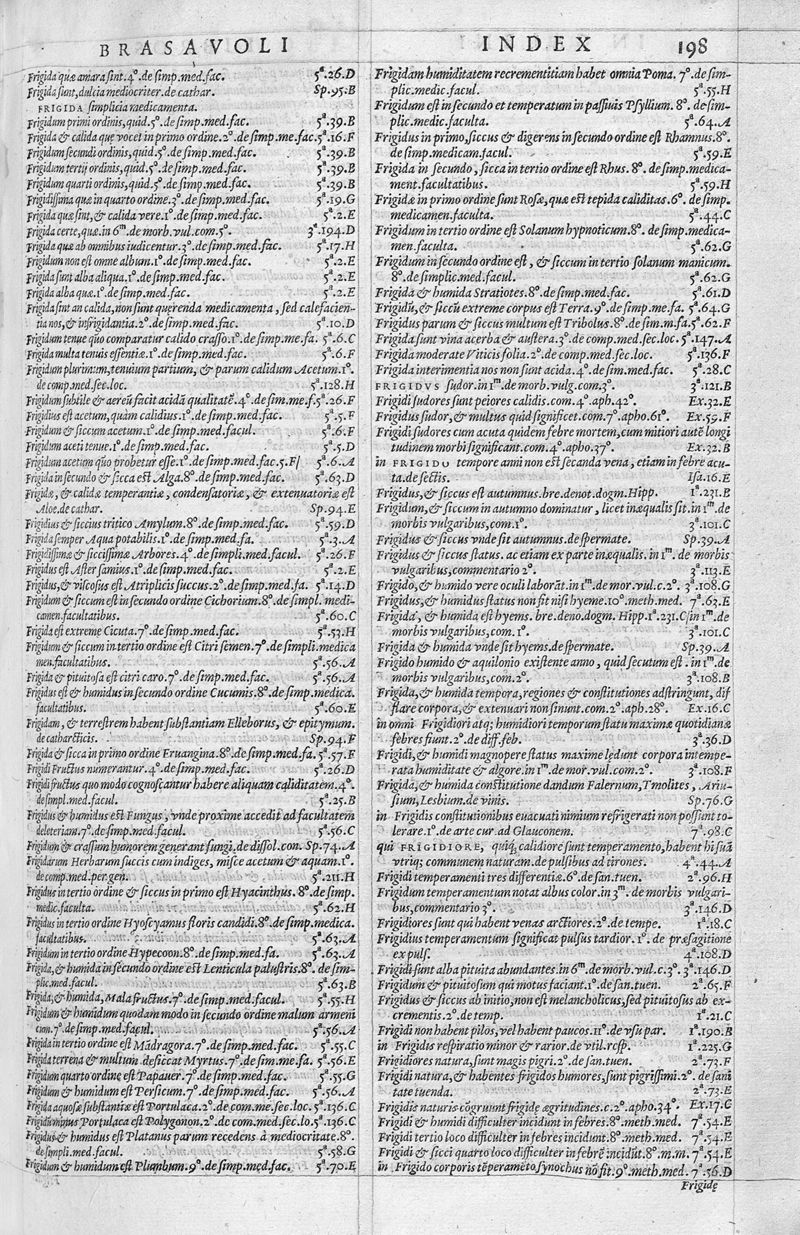 BRASAVOLI
Frigida quæ amara sint.4°.de simp.med.fac. 5ª.26.D
Frigida sunt,dulcia mediocriter.de cathar. Sp.95.B
FRIGIDA simplicia medicamenta.
Frigidum primi ordinis,quid.5°.de simp.med.fac. 5ª.39.B
Frigida & calida que vocet in primo ordine.2°.de simp.me.fac.5ª.16.F
Frigidum secundi ordinis,quid.5°.de simp.med.fac. 5ª.39.B
Frigidum tertij ordinis,quid.5°.de simp.med.fac. 5ª.39.B
Frigidum quarti ordinis,quid.5°.de simp.med.fac. 5ª.39.B
Frigidissima quæ in quarto ordine.3°.de simp.med.fac. 5ª.19.G
Frigida quæ sint,& calida vere.1°.de simp.med.fac. 5ª.2.E
Frigida certe,quæ.in 6ᵐ.de morb.vul.com.5°. 3ª.194.D
Frigida quæ ab omnibus iudicentur.3°.de simp.med.fac. 5ª.17.H
Frigidum non est omne album.1°.de simp.med.fac. 5ª.2.E
Frigida sunt alba aliqua.1°.de simp.med.fac. 5ª.2.E
Frigida alba quæ.1°.de simp.med.fac. 5ª.2.E
Frigida sint an calida,non sunt querenda medicamenta, sed calefacien-
tia nos,& infrigidantia.2°.de simp.med.fac. 5ª.10.D
Frigidum tenue quo comparatur calido crasso.1°.de simp.me.fa. 5ª.6.C
Frigida multa tenuis essentiæ.1°.de simp.med.fac. 5ª.6.F
Frigidum plurimum,tenuium partium, & parum calidum Acetum.1°.
de comp.med.sec.loc. 5ª.128.H
Frigidum subtile & aereū facit acidā qualitatē.4°.de sim.me.f.5ª.26.F
Frigidius est acetum,quàm calidius.1°.de simp.med.fac. 5ª.5.F
Frigidum & siccum acetum.1°.de simp.med.facul. 5ª.6.F
Frigidum aceti tenue.1°.de simp.med.fac. 5ª.5.D
Frigidum acetum quo probetur esse.1°.de simp.med.fac.5.F/ 5ª.6.A
Frigida in secundo & sicca est Alga.8°.de simp.med.fac. 5ª.63.D
Frigidæ, & calidæ temperantiæ, condensatoriæ, & extenuatoriæ est
Aloe.de cathar. Sp.94.E
Frigidius & siccius tritico Amylum.8°.de simp.med.fac. 5ª.59.D
Frigida semper Aqua potabilis.1°.de simp.med.fa. 5ª.3.A
Frigidissimæ & siccissimæ Arbores.4°.de simpli.med.facul. 5ª.26.F
Frigidus est After samius.1°.de simp.med.fac. 5ª.2.E
Frigidus,& viscosus est Atriplicis succus.2°.de simp.med.fa. 5ª.14.D
Frigidum & siccum est in secundo ordine Cichorium.8°.de simpl. medi-
camen.facultatibus. 5ª.60.C
Frigida est extreme Cicuta.7°.de simp.med.fac. 5ª.53.H
Frigidum & siccum in tertio ordine est Citri semen.7°.de simpli.medica
men.facultatibus. 5ª.56.A
Frigida & pituitosa est citri caro.7°.de simp.med.fac. 5ª.56.A
Frigidus est & humidus in secundo ordine Cucumis.8°.de simp.medica.
facultatibus. 5ª.60.E
Frigidam, & terrestrem habent substantiam Elleborus, & epitymum.
de catharcticis. Sp.94.F
Frigida & sicca in primo ordine Eruangina.8°.de simp.med.fa.5ª.57.F
Frigidi Fructus numerantur.4°.de simp.med.fac. 5ª.26.D
Frigidi fructus quo modo cognoscantur habere aliquam caliditatem.4°.
de simpl.med.facul. 5ª.25.B
Frigidus & humidus est Fungus, vnde proxime accedit ad facultatem
deleteriam.7°.de simp.med.facul. 5ª.56.C
Frigidum & crassum humorem generant fungi.de dissol.con. Sp.74.A
Frigidarum Herbarum succis cum indiges, misce acetum & aquam.1°.
de comp.med.per.gen. 5ª.211.H
Frigidus in tertio ordine & siccus in primo est Hyacinthus. 8°.de simp.
medic.faculta. 5ª.62.H
Frigidus in tertio ordine Hyoscyamus floris candidi.8°.de simp.medica.
facultatibus. 5ª.63.A
Frigidum in tertio ordine Hypecoon.8°.de simp.med.fa. 5ª.63.A
Frigida,& humida in secundo ordine est Lenticula palustris.8°. de sim-
plic.med.facul. 5ª.63.B
Frigida,& humida, Mala fructus.7°.de simp.med.facul. 5ª.55.H
Frigidum & humidum quodam modo in secundo ordine malum armeni
cum.7°.de simp.med.facul. 5ª.56.A
Frigida in tertio ordine est Mādragora.7°.de simp.med.fac. 5ª.55.C
Frigida terrena & multum desiccat Myrtus.7°.de sim.me.fa. 5ª.56.E
Frigidum quarto ordine est Papauer.7°.de simp.med.fac. 5ª.55.G
Frigidum & humidum est Persicum.7°.de simp.med.fac. 5ª.56.A
Frigida aquosæ substantiæ est Portulaca.2°.de com.me.sec.loc.5ª.136.C
Frigidum minus Portulaca est Polygonon.2°.de com.med.sec.lo.5ª.136.C
Frigidus & humidus est Platanus parum recedens à mediocritate.8°.
de simpli.med.facul. 5ª.58.G
Frigidum & humidum est Plumbum.9°.de simp.med.fac. 5ª.70.E
INDEX 198
Frigidam humiditatem recrementitiam habet omnia Poma. 7°.de sim-
plic.medic.facul. 5ª.55.H
Frigidum est in secundo et temperatum in passiuis Psyllium. 8°.de sim-
plic.med.faculta. 5ª.64.A
Frigidus in primo,siccus & digerens in secundo ordine est Rhamnus.8°.
de simp.medicam.facul. 5ª.59.E
Frigida in secundo, sicca in tertio ordine est Rhus. 8°. de simp.medica-
ment.facultatibus. 5ª.59.H
Frigidæ in primo ordine sunt Rosæ,quæ est tepida caliditas.6°. de simp.
medicamen.faculta. 5ª.44.C
Frigidum in tertio ordine est Solanum hypnoticum.8°. de simp.medica-
men.faculta. 5ª.62.G
Frigidum in secundo ordine est, & siccum in tertio solanum manicum.
8°.de simplic.med.facul. 5ª.62.G
Frigida & humida Stratiotes.8°.de simp.med.fac. 5ª.61.D
Frigidū,& siccū extreme corpus est Terra.9°.de simp.me.fa. 5ª.64.G
Frigidus parum & siccus multum est Tribolus.8°.de sim.m.fa.5ª.62.F
Frigida sunt vina acerba & austera.3°.de comp.med.sec.loc. 5ª.147.A
Frigida moderate Viticis folia.2°.de comp.med.sec.loc. 5ª.136.F
Frigida interimentia nos non sunt acida.4°.de sim.med.fac. 5ª.28.C
FRIGIDVS sudor.in 1ᵐ.de morb.vulg.com.3°. 3ª.121.B
Frigidi sudores sunt peiores calidis.com.4°.aph.42°. Ex.32.E
Frigidus sudor,& multus quid significet.com.7°.apho.61°. Ex.59.F
Frigidi sudores cum acuta quidem febre mortem,cum mitiori autē longi
tudinem morbi significant.com.4°.apho.37°. Ex.32.B
in FRIGIDO tempore anni non est secanda vena, etiam in febre acu-
ta.de sectis. Isa.16.E
Frigidus,& siccus est autumnus.bre.denot.dogm.Hipp. 1ª.231.B
Frigidum,& siccum in autumno dominatur, licet inæqualis sit.in 1ᵐ.de
morbis vulgaribus,com.1°. 3ª.101.C
Frigidus & siccus vnde fit autumnus.de spermate. Sp.39.A
Frigidus & siccus status. ac etiam ex parte inæqualis. in 1ᵐ. de morbis
vulgaribus,commentario 2°. 3ª.113.E
Frigido,& humido vere oculi laborāt.in 1ᵐ.de mor.vul.c.2°. 3ª.108.G
Frigidus,& humidus status non fit nisi hyeme.10°.meth.med. 7ª.63.E
Frigida, & humida est hyems. bre.deno.dogm. Hipp.1ª.231.C/in 1ᵐ.de
morbis vulgaribus,com.1°. 3ª.101.C
Frigida & humida vnde sit hyems.de spermate. Sp.39.A
Frigido humido & aquilonio existente anno, quid secutum est. in 1ᵐ.de
morbis vulgaribus,com.2°. 3ª.108.B
Frigida,& humida tempora,regiones & constitutiones adstringunt, dif
flare corpora,& extenuari non sinunt.com.2°.aph.28°. Ex.16.C
in omni Frigidiori atq; humidiori temporum statu maxime quotidianæ
febres fiunt.2°.de diff.feb. 3ª.36.D
Frigidi,& humidi magnopere status maxime lędunt corpora intempe-
rata humiditate & algore.in 1ᵐ.de mor.vul.com.2°. 3ª.108.F
Frigida,& humida constitutione dandum Falernum,Tmolites, Ariu-
sium,Lesbium.de vinis. Sp.76.G
in Frigidis constitutionibus euacuati nimium refrigerati non possunt to-
lerare.1°.de arte cur.ad Glauconem. 7ª.98.C
qui FRIGIDIORE, quiq; calidiore sunt temperamento,habent hi suā
vtriq; communem naturam.de pulsibus ad tirones. 4ª.44.A
Frigidi temperamenti tres differentiæ.6°.de san.tuen. 2ª.96.H
Frigidum temperamentum notat albus color.in 3ᵐ. de morbis vulgari-
bus,commentario 3°. 3ª.146.D
Frigidiores sunt qui habent venas arctiores.2°.de tempe. 1ª.18.C
Frigidius temperamentum significat pulsus tardior.1°. de præsagitione
ex puls. 4ª.108.D
Frigidi sunt alba pituita abundantes.in 6ᵐ.de morb.vul.c.3°. 3ª.146.D
Frigidum & pituitosum qui motus faciant.1°.de san.tuen. 2ª.65.F
Frigidus & siccus ab initio,non est melancholicus,sed pituitosus ab ex-
crementis.2°.de temp. 1ª.21.C
Frigidi non habent pilos,vel habent paucos.11°.de vsu par. 1ª.190.B
in Frigidis respiratio minor & rarior.de vtil.resp. 1ª.225.G
Frigidiores natura,sunt magis pigri.2°.de san.tuen. 2ª.73.F
Frigidi natura,& habentes frigidos humores,sunt pigrissimi.2°.de sani
tate tuenda. 2ª.73.E
Frigidis naturis cōgruunt frigidę ægritudines.c.2°.apho.34°. Ex.17.C
Frigidi & humidi difficulter incidunt in febres.8°.meth.med. 7ª.54.E
Frigidi tertio loco difficulter in febres incidunt.8°.meth.med. 7ª.54.E
Frigidi & sicci quarto loco difficulter in febrē incidūt.8°.m.m. 7ª.54.E
in Frigido corporis tēperamēto synochus nō fit.9°.meth.med. 7ª.56.D
Frigidę